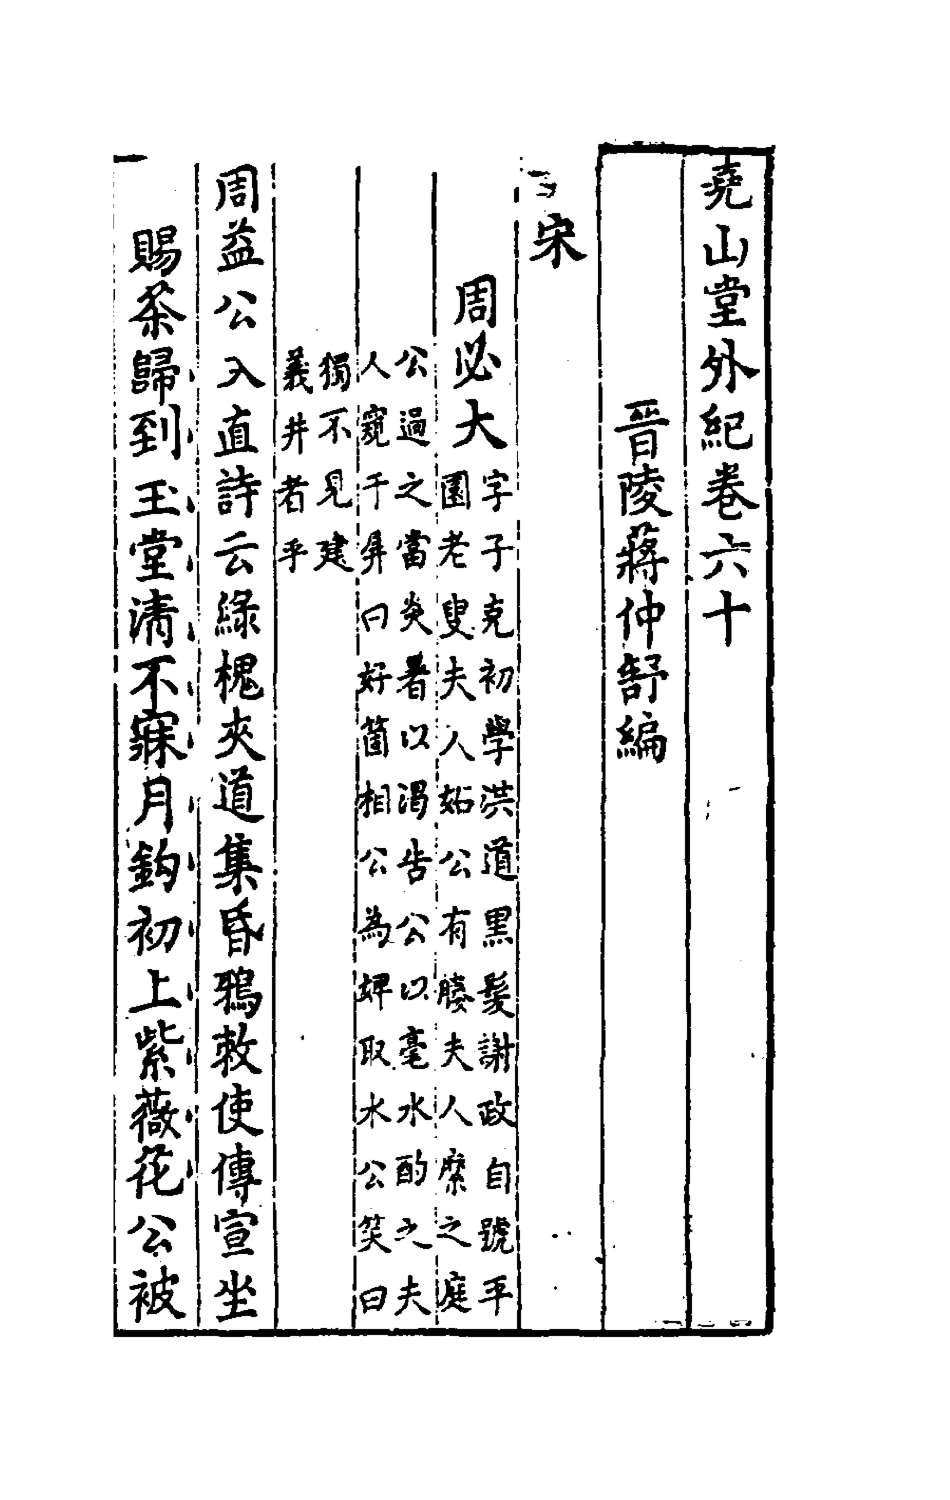 堯山堂外紀卷六十
晉陵蔣仲舒編
宋
周必大
字子克初學洪道黑髮謝政自號平
園老叟夫人妬公有媵夫人縻之庭
公過之當炎暑以渴告公以毫水酌之夫
人窺于屏曰好箇相公為婢取水公笑曰
獨不見建
義井者乎
周益公入直詩云綠槐夾道集昏鴉敕使傳宣坐
賜茶歸到玉堂清不寐月鈎初上紫薇花公被